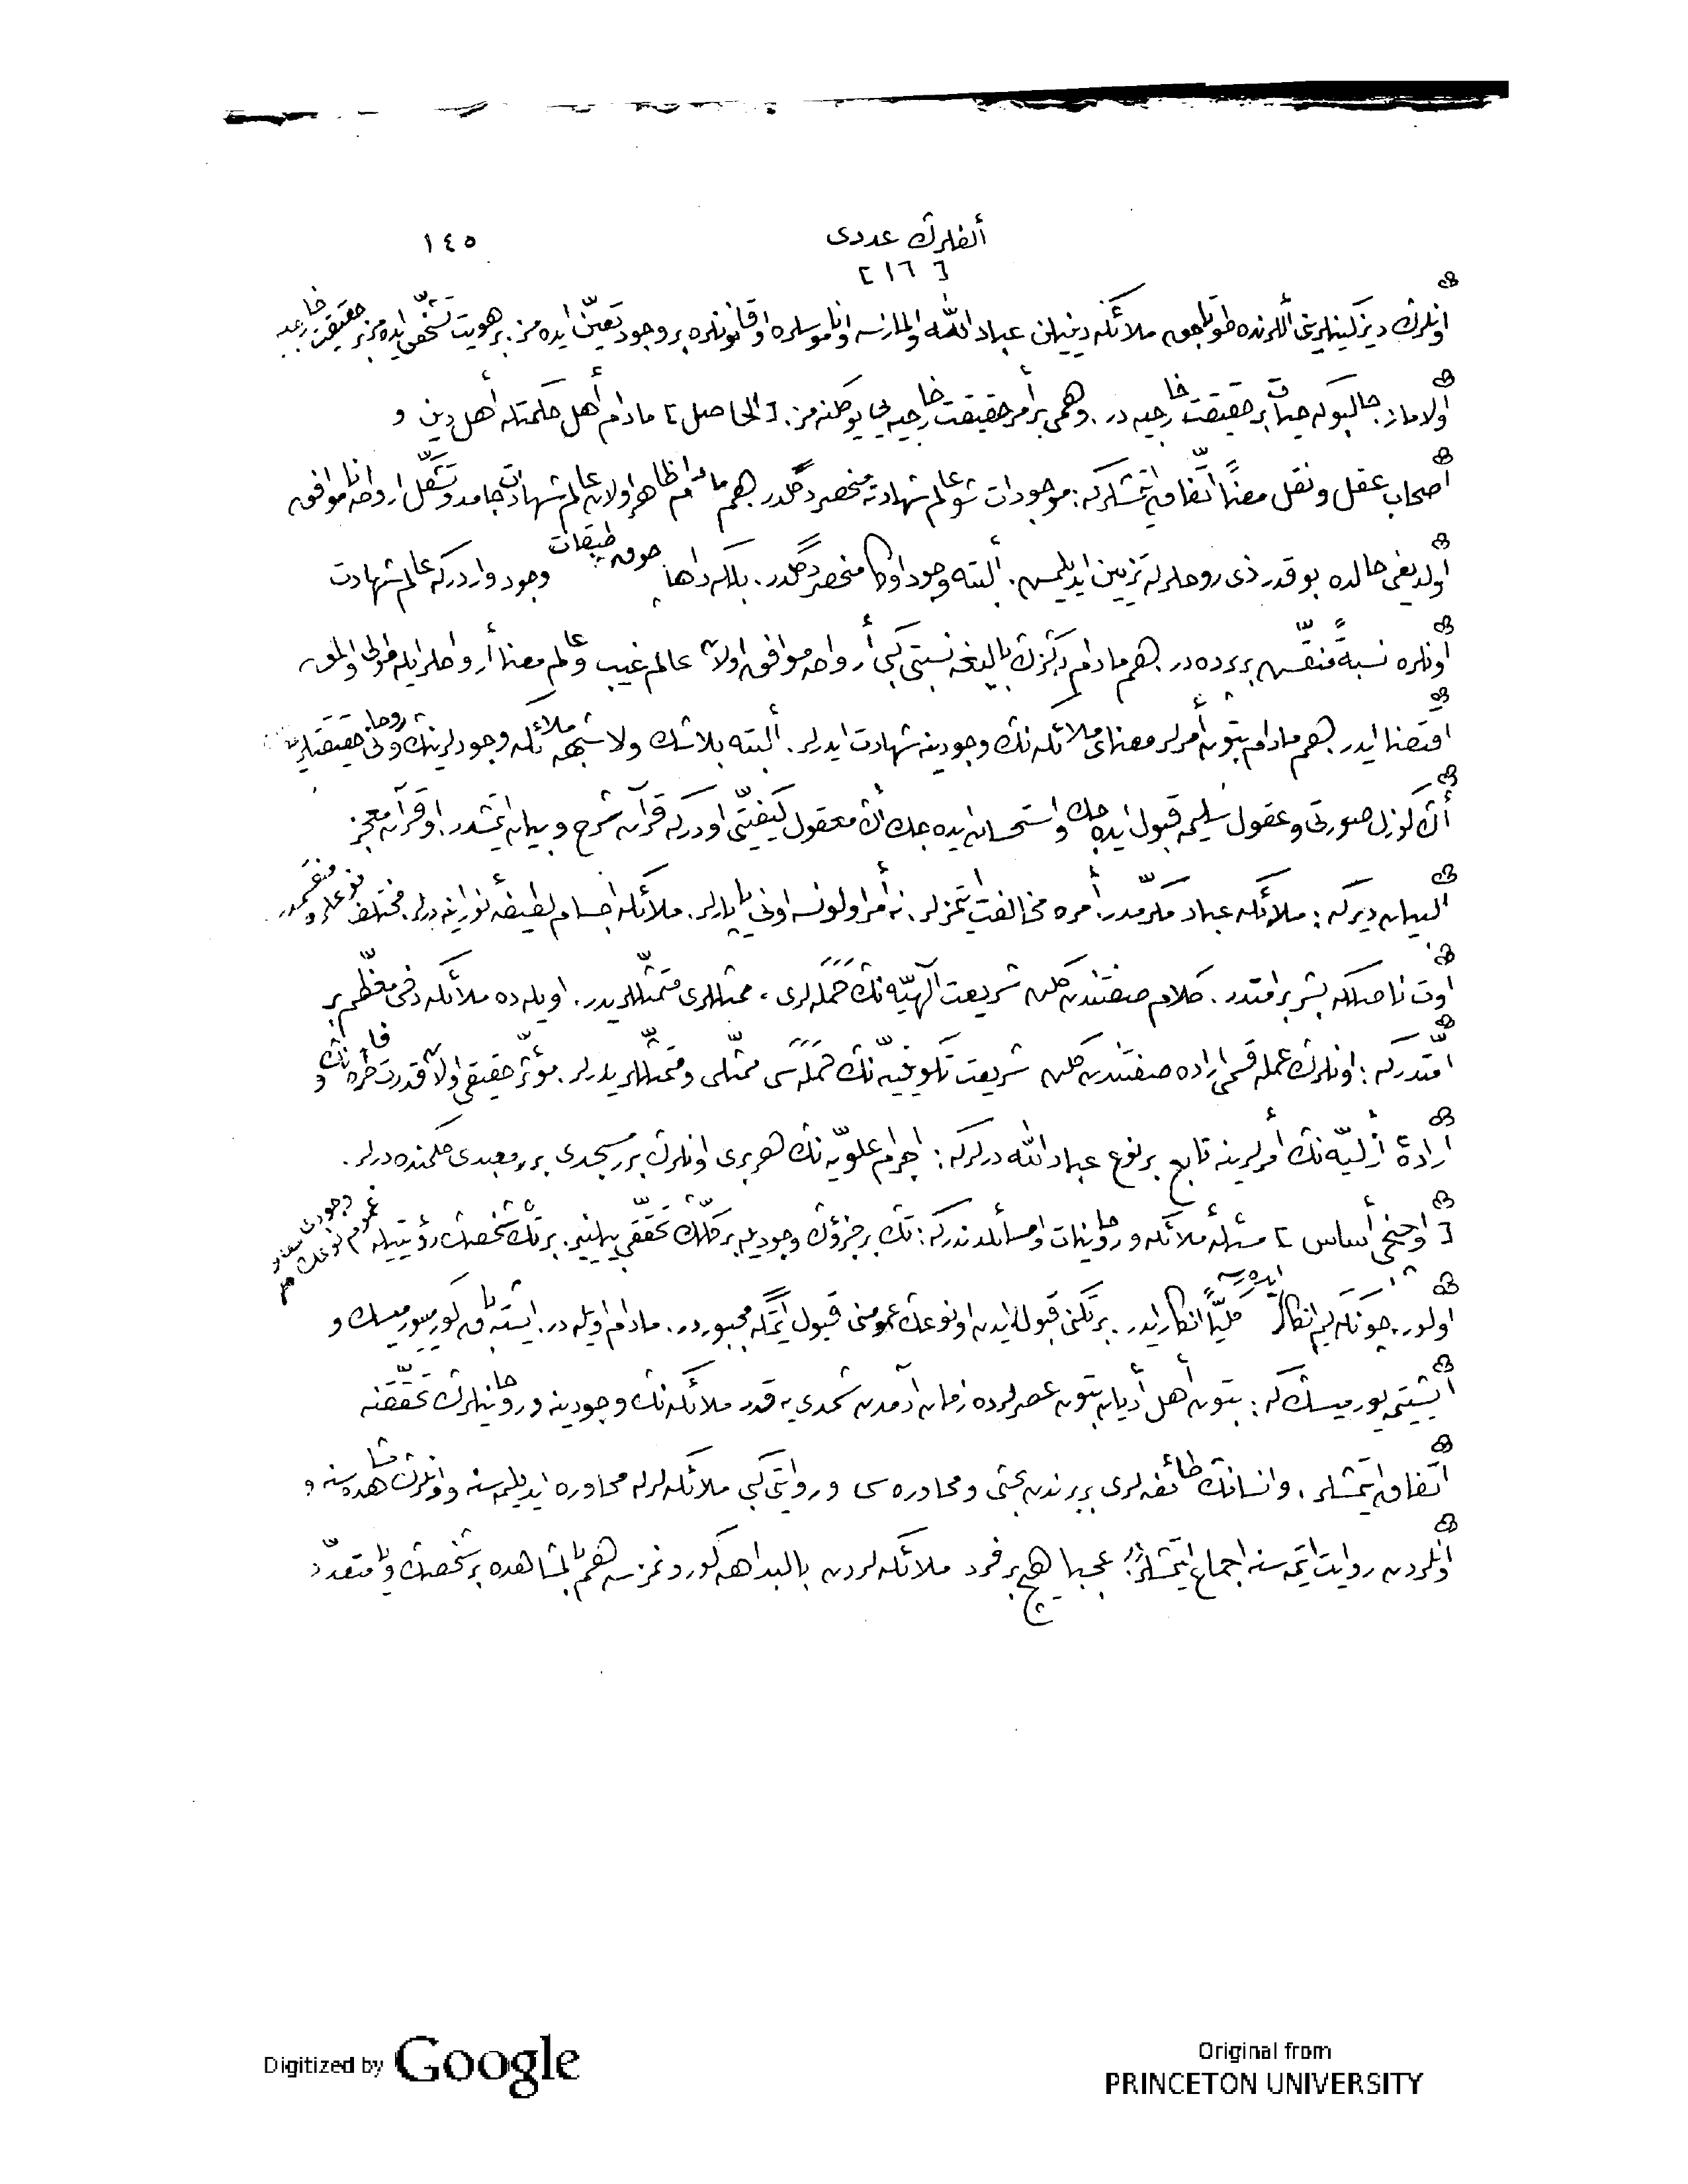 ألفلرڭ عددی ١٤٥
[ ٢١٦ ]
اونلرڭ دیزكینلرینی أللرنده طوتاجق ملائكه دینیلن عباد اللّه اولمازسه او ناموسلره او قانونلره بر وجود تعیّن ایده مز. بر هویت تشخّص ایده مز بر حقیقت خارجیه
اولاماز. حالبوكه حیات بر حقیقت خارجیه در. وهمی بر أمر حقیقت خارجیه یی یوكلنه مز. [ الحاصل ] مادام أهل حكمتله أهل دین و
أصحاب عقل و نقل معناً اتّفاق ایتمشلركه: موجودات شو عالم شهادته منحصر دگلدر. هم مادام ظاهر اولان عالم شهادت جامد و تشكّل ارواحه نا موافق
اولدیغی حالده بو قدر ذی روحلرله تزیین ایدیلمش. ألبته وجود اوڭا منحصر دگلدر. بلكه داها چوق طبقات وجود واردركه عالم شهادت
اونلره نسبةً منقّش بر پرده در. هم مادام دكزڭ بالیغه نسبتی كبی أرواحه موافق اولان عالم غیب و عالم معنا أرواحلر ایله طولی اولمق
اقتضا ایدر. هم مادام بتون أمرلر معنای ملائكه نڭ وجودینه شهادت ایدرلر. ألبته بلا شك ولا شبهه ملائكه وجودلرینڭ و روحانی حقیقتلرینڭ
أڭ گوزل صورتی و عقول سلیمه قبول ایده جك و استحسان ایده جك أڭ معقول كیفیّتی اودركه قرآن شرح و بیان ایتمشدر. او قرآن معجز
البیان دیركه: ملائكه عباد مكرمدر. أمره مخالفت ایتمزلر. نه أمر اولونسه اونی یاپارلر. ملائكه اجسام لطیفۀ نورانیه درلر. مختلف نوعلره منقسمدر.
أوت ناصلكه بشر بر امّتدر. كلام صفتندن گلن شریعت الٓهیّه نڭ حَمَله لری، ممثللری متمثّللریدر. اویله ده ملائكه دخی معظّم بر
امّتدركه: اونلرڭ عمله قسمی اراده صفتندن گلن شریعت تكوینیّه نڭ حَمَله سی ممثّلی و متمثّللریدرلر. مؤثّر حقیقی اولان قدرت فاطره نڭ و
ارادۀ أزلیّه نڭ أمرلرینه تابع بر نوع عباد اللّه درلركه: اجرام علویّه نڭ هر بری اونلرڭ برر مسجدی برر معبدی حكمنده درلر.
[ اوچنجی أساس ] مسئلۀ ملائكه و روحانیات او مسائلدندركه: تك بر جزؤڭ وجودیله بر كلّڭ تحقّقی بیلینیر. بر تك شخصڭ رؤیتیله عموم نوعڭ وجودی معلوم
اولور. چونكه كیم انكار ایدرسه كلیّاً انكار ایدر. بر تكنی قبول ایدن او نوعڭ عمومنی قبول ایتمگه مجبوردر. مادام اویله در. ایشته باق گورمیورمیسڭ و
ایشیتمه یورمیسڭ كه: بتون أهل أدیان بتون عصرلرده زمان آدمدن شمدی یه قدر ملائكه نڭ وجودینه و روحانیلرڭ تحقّقنه
اتّفاق ایتمشلر. و انسانڭ طائفه لری بربرندن بحثی و محاوره سی و روایتی كبی ملائكه لرله محاوره ایدیلمه سنه و اونلرڭ مشاهده سنه و
اونلردن روایت ایتمه سنه اجماع ایتمشلردر؛ عجبا هیچ بر فرد ملائكه لردن بالبداهه گورونمزسه هم بالمشاهده بر شخصڭ ویا متعدّد
Digitized by Google
Original from
PRINCETON UNIVERSITY